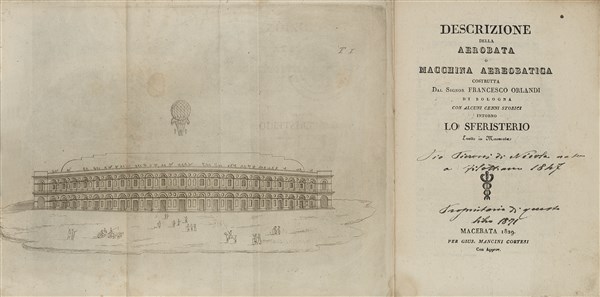 T. I.
DESCRIZIONE
DELLA
AEROBATA
O
MACCHINA AEREOBATICA
COSTRUTTA
DAL SIGNOR FRANCESCO ORLANDI
DI BOLOGNA
CON ALCUNI CENNI STORICI
INTORNO
LO SFERISTERIO
Eretto in Macerata
di Nicola
a 1847
Proprietario di questo
libro 1871
MACERATA 1829.
PER GIUS. MANCINI CORTESI
Con Approv.